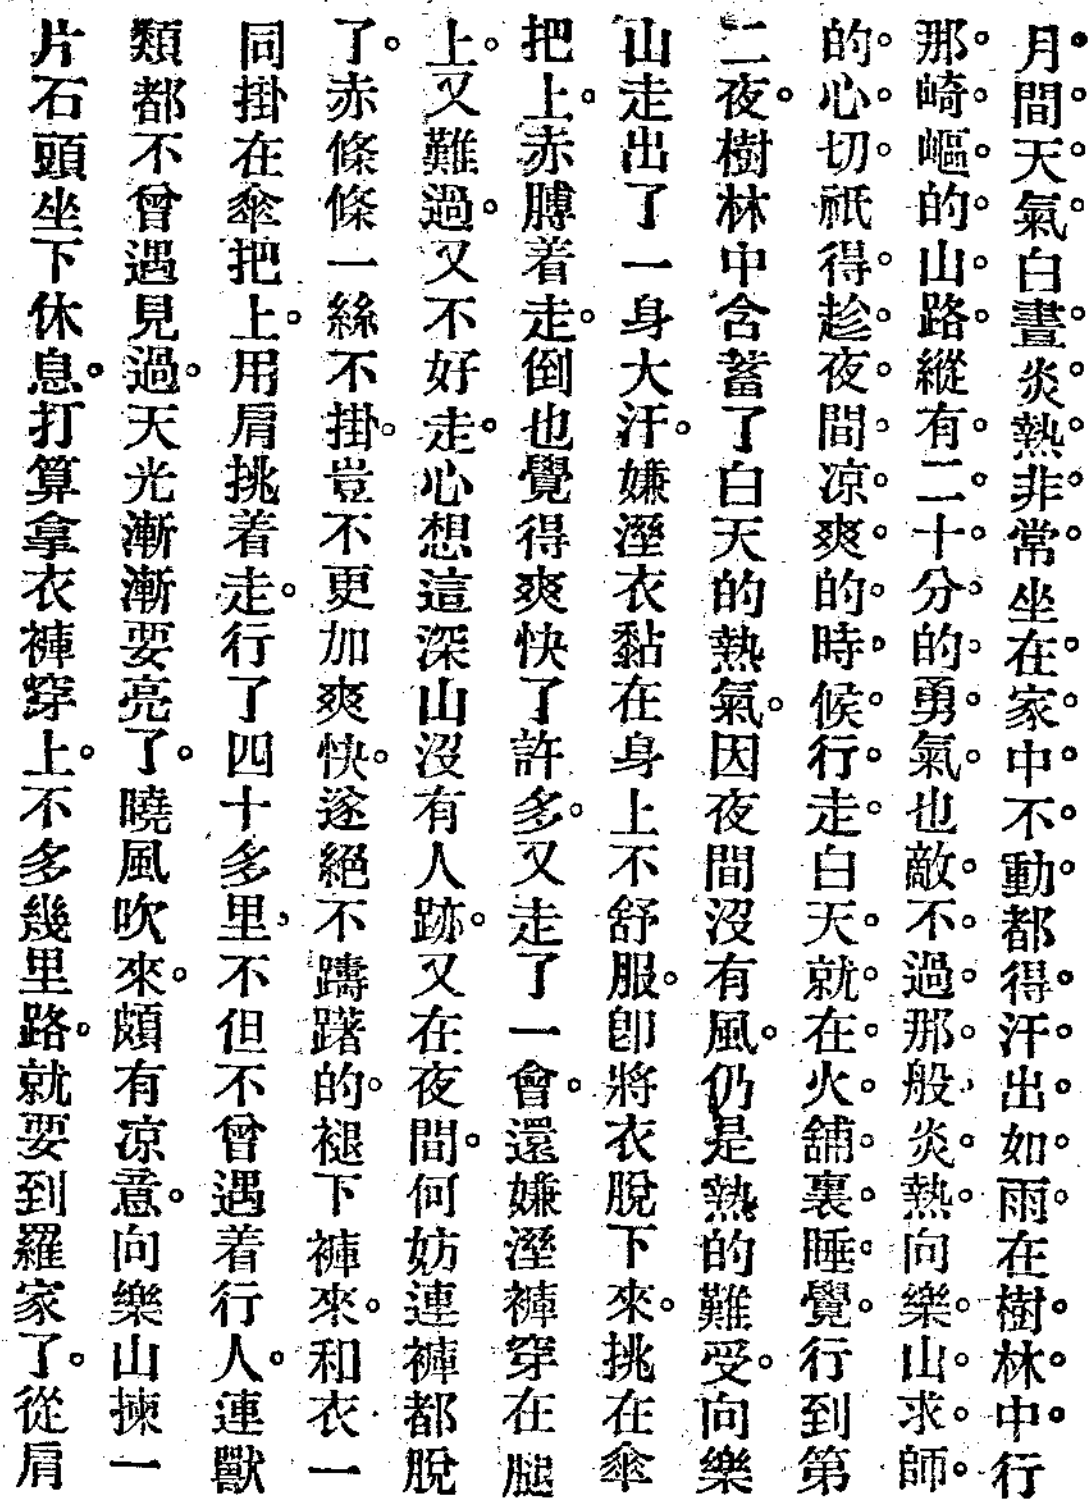 月間天氣白晝炎熱非常坐在家中不動都得汗出如雨在樹林中行
那崎嶇的山路縱有二十分的勇氣也敵不過那般炎熱向樂山求師
的心切祇得趁夜間凉爽的時候行走白天就在火舖裏睡覺行到第
二夜樹林中含蓄了白天的熱氣因夜間沒有風仍是熱的難受向樂
山走出了一身大汗嫌溼衣黏在身上不舒服卽將衣脫下來挑在傘
把上赤膊着走倒也覺得爽快了許多又走了一會還嫌溼褲穿在腿
上又難過又不好走心想這深山沒有人跡又在夜間何妨連褲都脫
了赤條條一絲不掛豈不更加爽快遂絕不躊躇的褪下褲來和衣一
同掛在傘把上用肩挑着走行了四十多里不但不曾遇着行人連獸
類都不曾遇見過天光漸漸要亮了曉風吹來頗有凉意向樂山揀一
片石頭坐下休息打算拿衣褲穿上不多幾里路就要到羅家了從肩